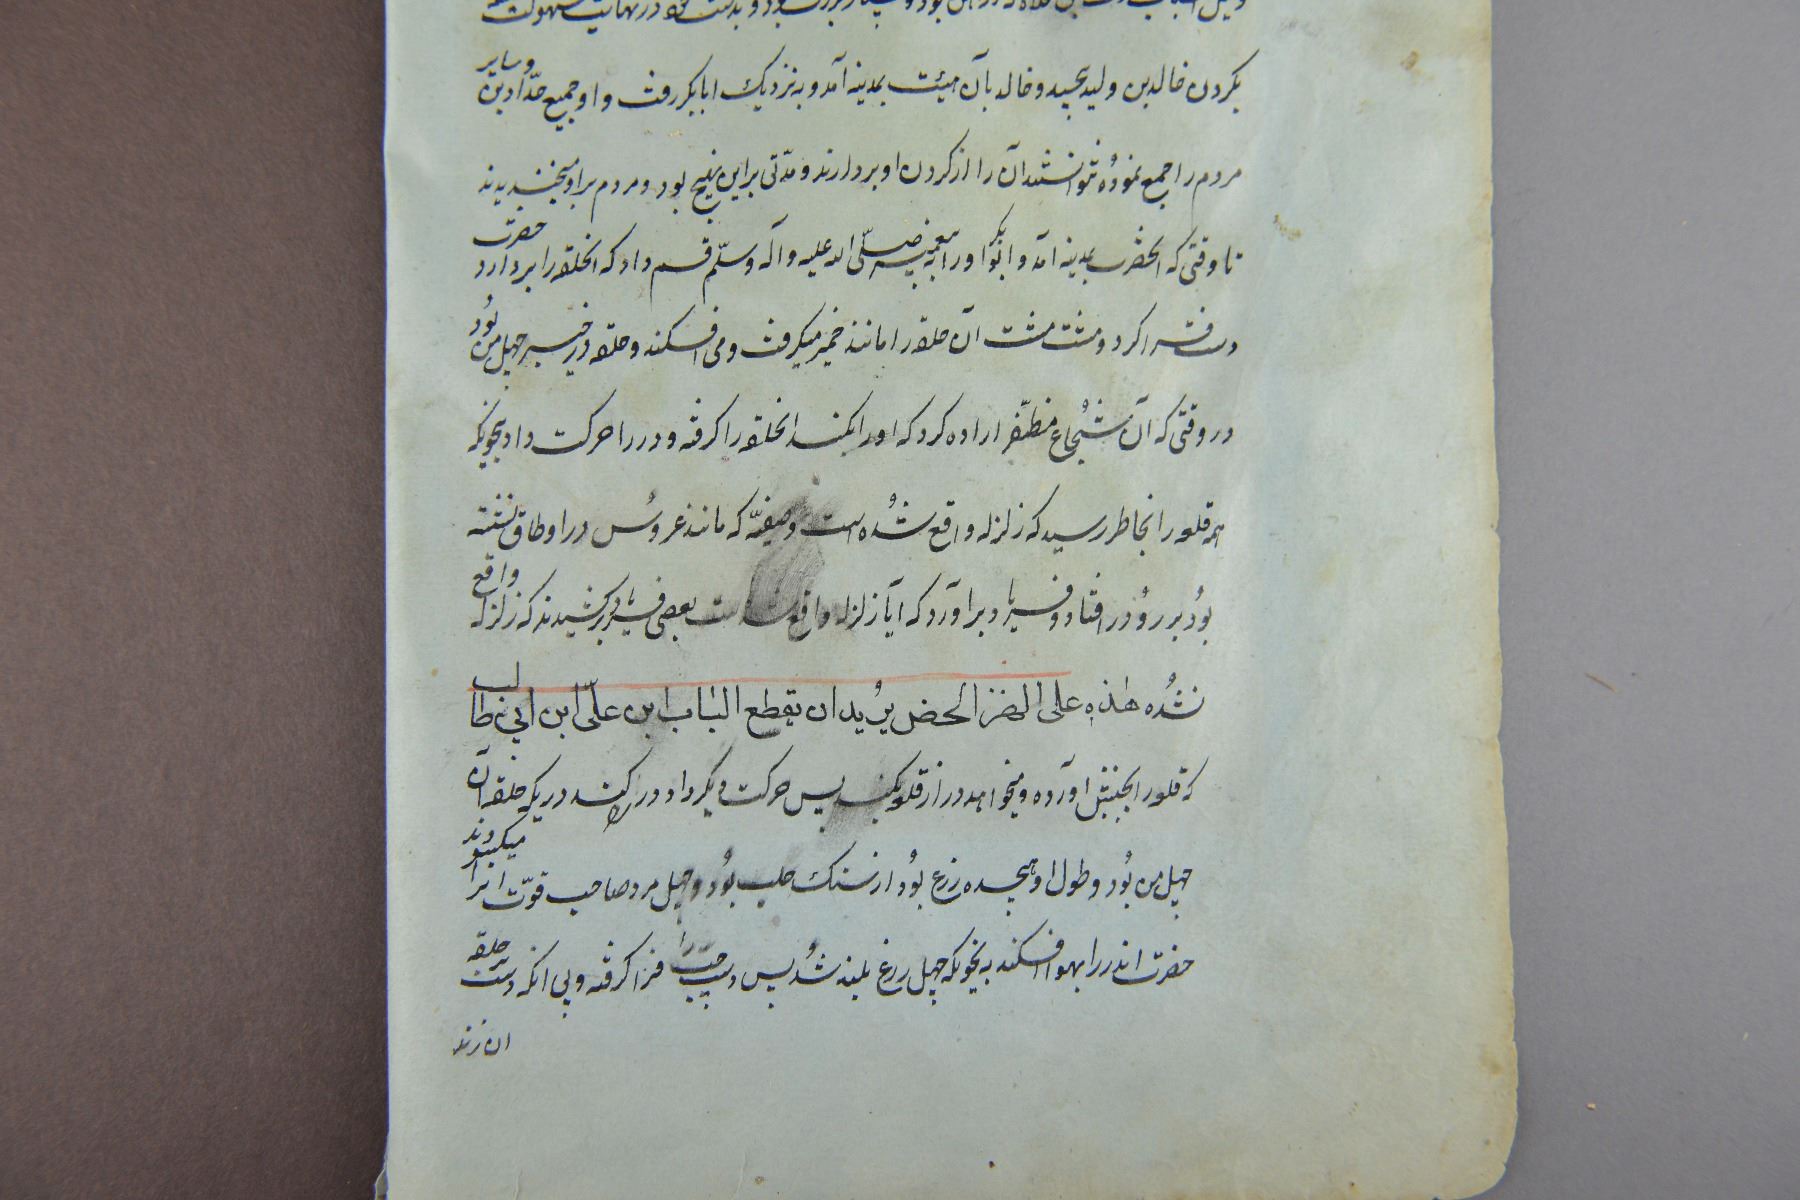 بگردن خالدبن ولید پیچید و خالد بآن هیئت بمدینه آمد و به نزدیک ابابکر رفت و او جمیع حدّادین و سایر
مردم را جمع نموده نتوانستند آن را از گردن او بردارند و مدّتی براین نهج بود و مردم براو میخندیدند
تا وقتی که انحضرت بمدینه آمد و ابوبکر او را به پیغمبر صلّی الله علیه و آله و سلّم قسم داد که انحلقه را بردارد حضرت
دست فرا کرد و مشت مشت آن حلقه را مانند خمیر میگرفت و می افکند و حلقه در خیبر چهل من بُود
در وقتی که آن شُجاع مظفّر اراده کرد که او را بکند انحلقه را گرفته و در را حرکت داد بنحویکه
اهر قلعه را بخاطر رسید که زلزله واقع شُده است و صفیّه که مانند عروسُ در اوطاق نشسته
بوُد بر روُ در افتاد و فریاد برآورد که ایا زلزله واقع شده است بعضی فریاد برکشیدند که زلزله واقع
نشُده هٰذه علی الهزز الحض یرُیدان یقطع الباب ابن علیّ ابن ابی طالب
که قلعه را بجنبش اورده و میخواهد در از قلعه بکند پس حرکت دیگر داد و در را کند در یکه حلقه آن
چهل من بُود و طول او هیجده زرع بُود از سنک صلب بُود و چهل مرد صاحب قوّت انرا میکشودند
حضرت اندر را بهوا افکند به نحویکه چهل زرع بلند شُد پس دست چپ را فرا گرفته و بی انکه دست حلقه
ان زند